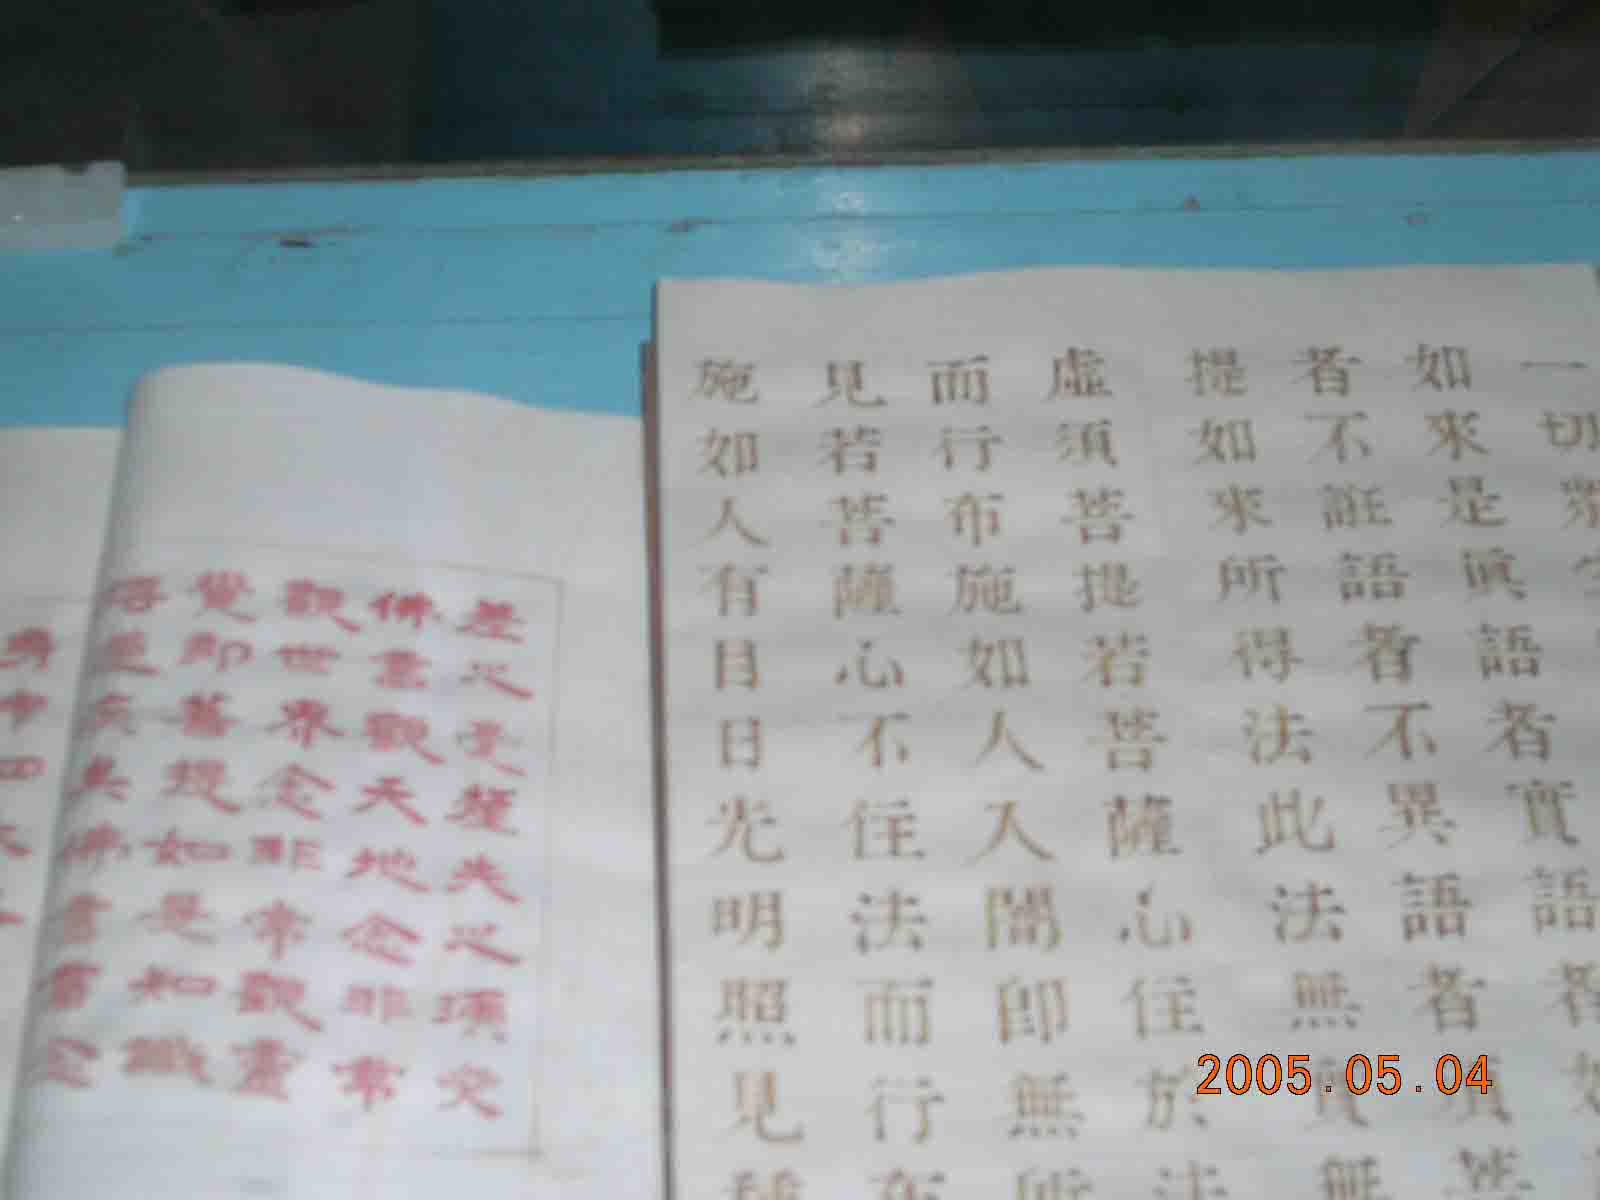 一切
如來是眞語者實語者如
者不誑語者不異語者須菩
提如來所得法此法無實無
虛須菩提若菩薩心住於法
而行布施如人入闇卽無所
見若菩薩心不住法而行布
施如人有目日光明照見種
差之毫釐失之
佛言觀天地念非常
觀世界念非常觀靈
覺即菩提如是知識
得道疾矣佛言當念
身中四大
2005.05.04